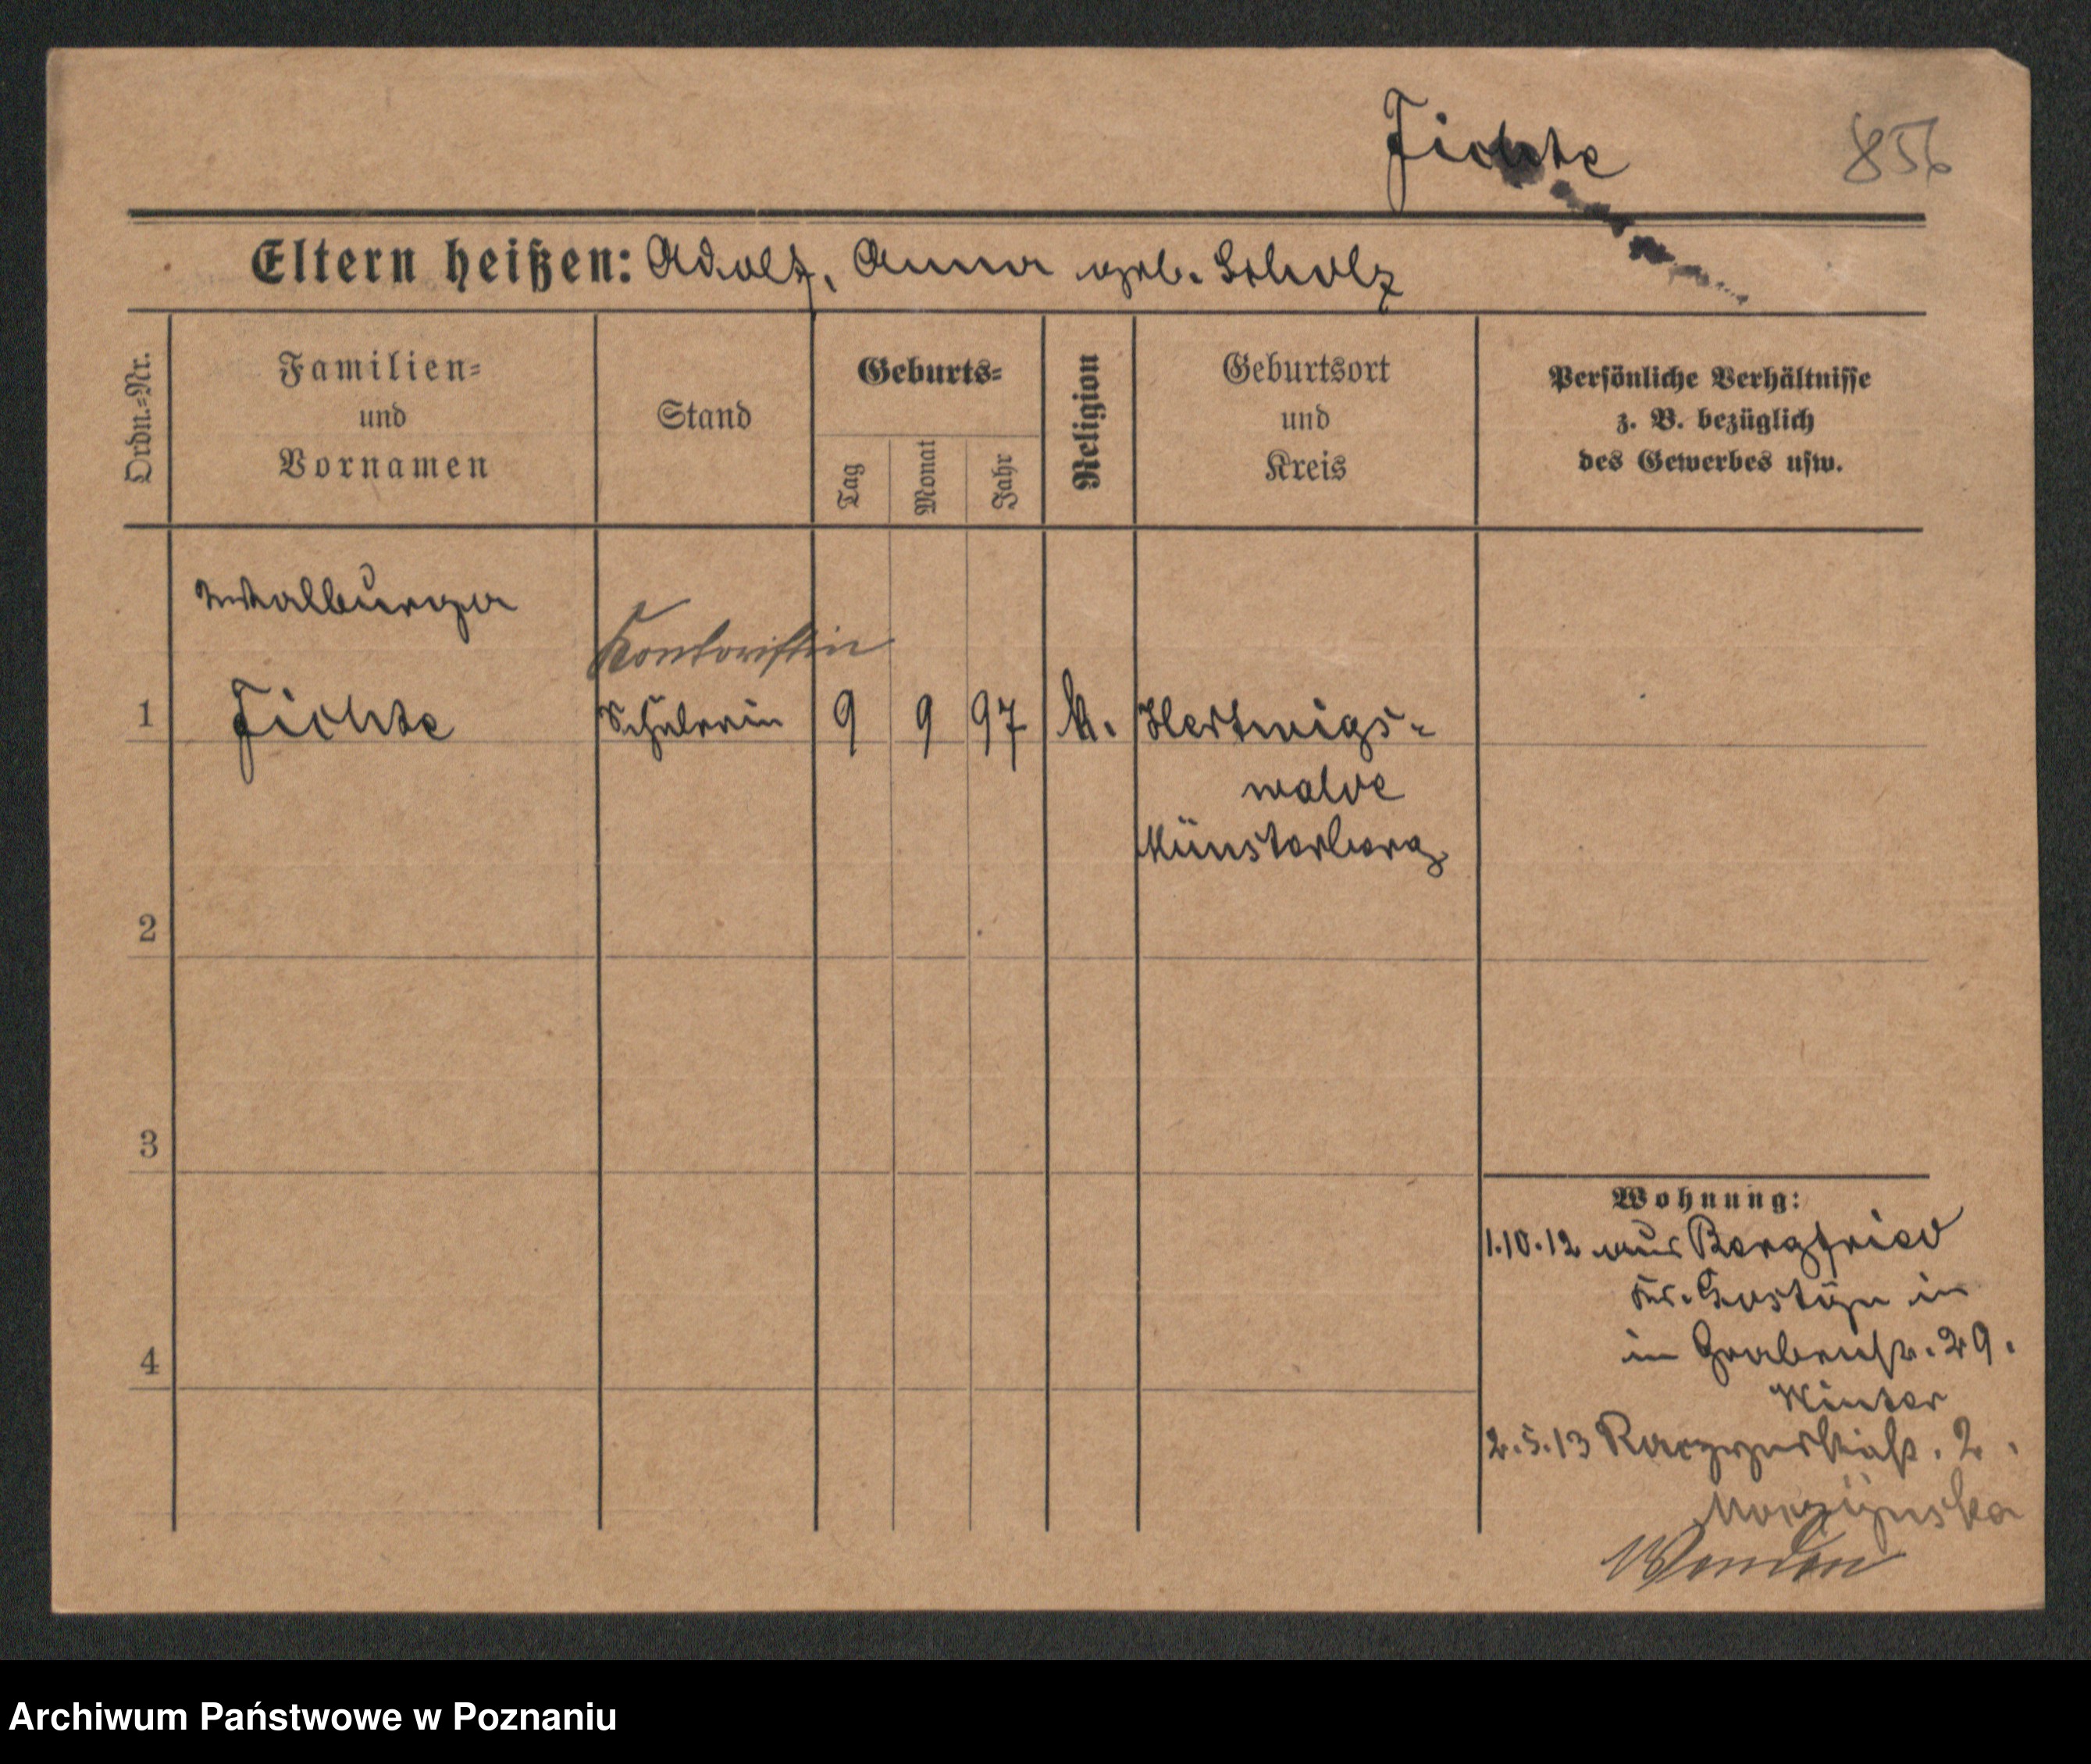 Fichte
856
Eltern heißen: Adolf, Anna geb. Scholz
Ordn.=Nr.
Familien=
und
Vornamen
Stand
Geburts=
Tag
Monat
Jahr
Religion
Geburtsort
und
Kreis
Persönliche Verhältnisse
z. B. bezüglich
des Gewerbes usw.
Walburga
Kontoristin
1 Fichte Schülerin 9 9 97 k. Hertwigs-
walde
Münsterberg
2
3
4
Wohnung:
1.10.12 aus Bergfried
Kr. Gostyn in
in Grabenstr. 29.
Winter
2.5.13 Raczynskistr. 2.
Wenden
Archiwum Państwowe w Poznaniu